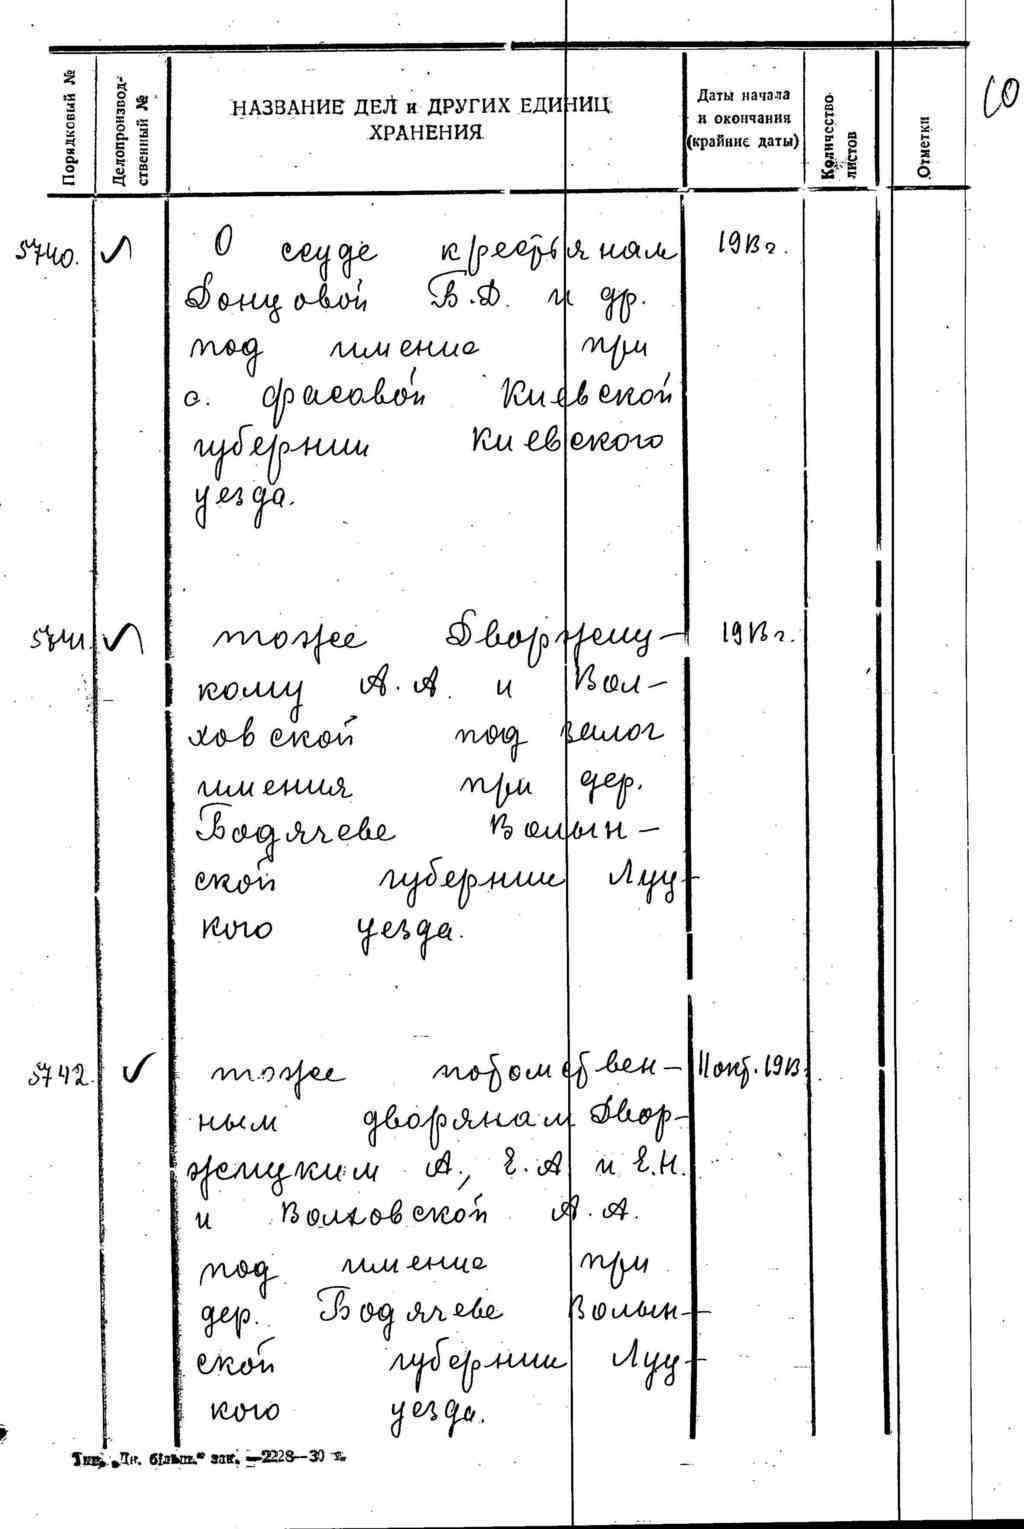 Порядковый №
Делопроизвод-
ственный №
НАЗВАНИЕ ДЕЛ и ДРУГИХ ЕДИНИЦ
ХРАНЕНИЯ
Даты начала
и окончания
(крайние даты)
Количество
листов
Отметки
10
5740. О ссуде крестьянам 1913 г.
Донцовой В.Д. и др.
под имение при
с. Фасовой Киевской
губернии Киевского
уезда.
5741. тоже Дворжецу- 1913 г.
кому А.А. и Вол-
ховской под залог
имения при дер.
Водячеве Волын-
ской губернии Луц-
кого уезда.
5742. тоже потомствен- 11 окт. 1913
ным дворянам Двор-
жецуким А., Е.А и Е.Н.
и Волховской А.А.
под имение при
дер. Бодячеве Волын-
ской губернии Луц-
кого уезда.
Тип. „Дн. більш." зак. —2228—30 т.